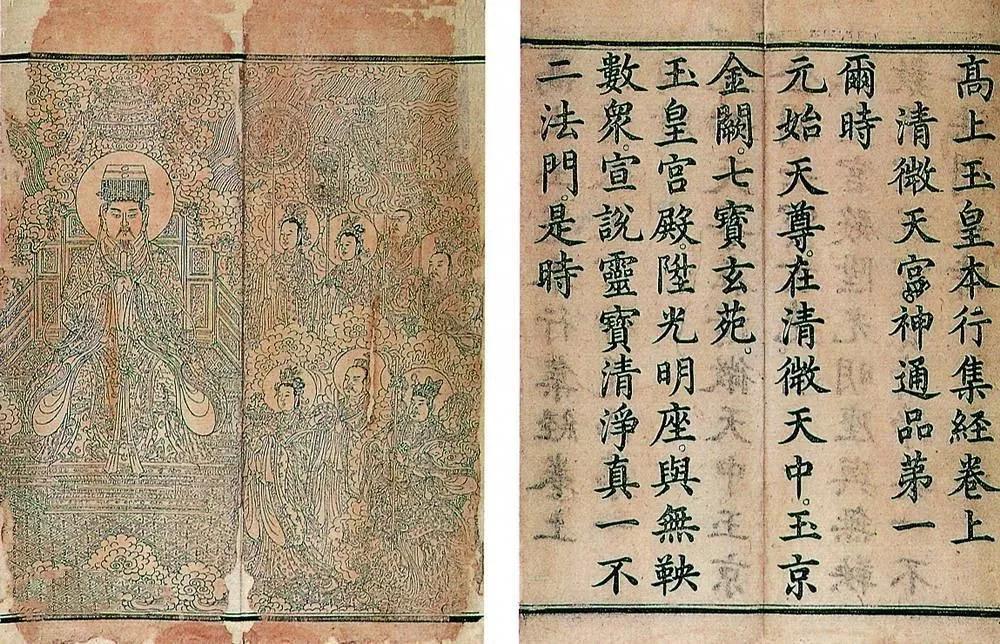 高上玉皇本行集經卷上
清微天宮神通品第一
爾時
元始天尊。在清微天中。玉京
金闕。七寶玄苑。
玉皇宮殿。陞光明座。與無鞅
數眾。宣説靈寶清淨真一不
二法門。是時